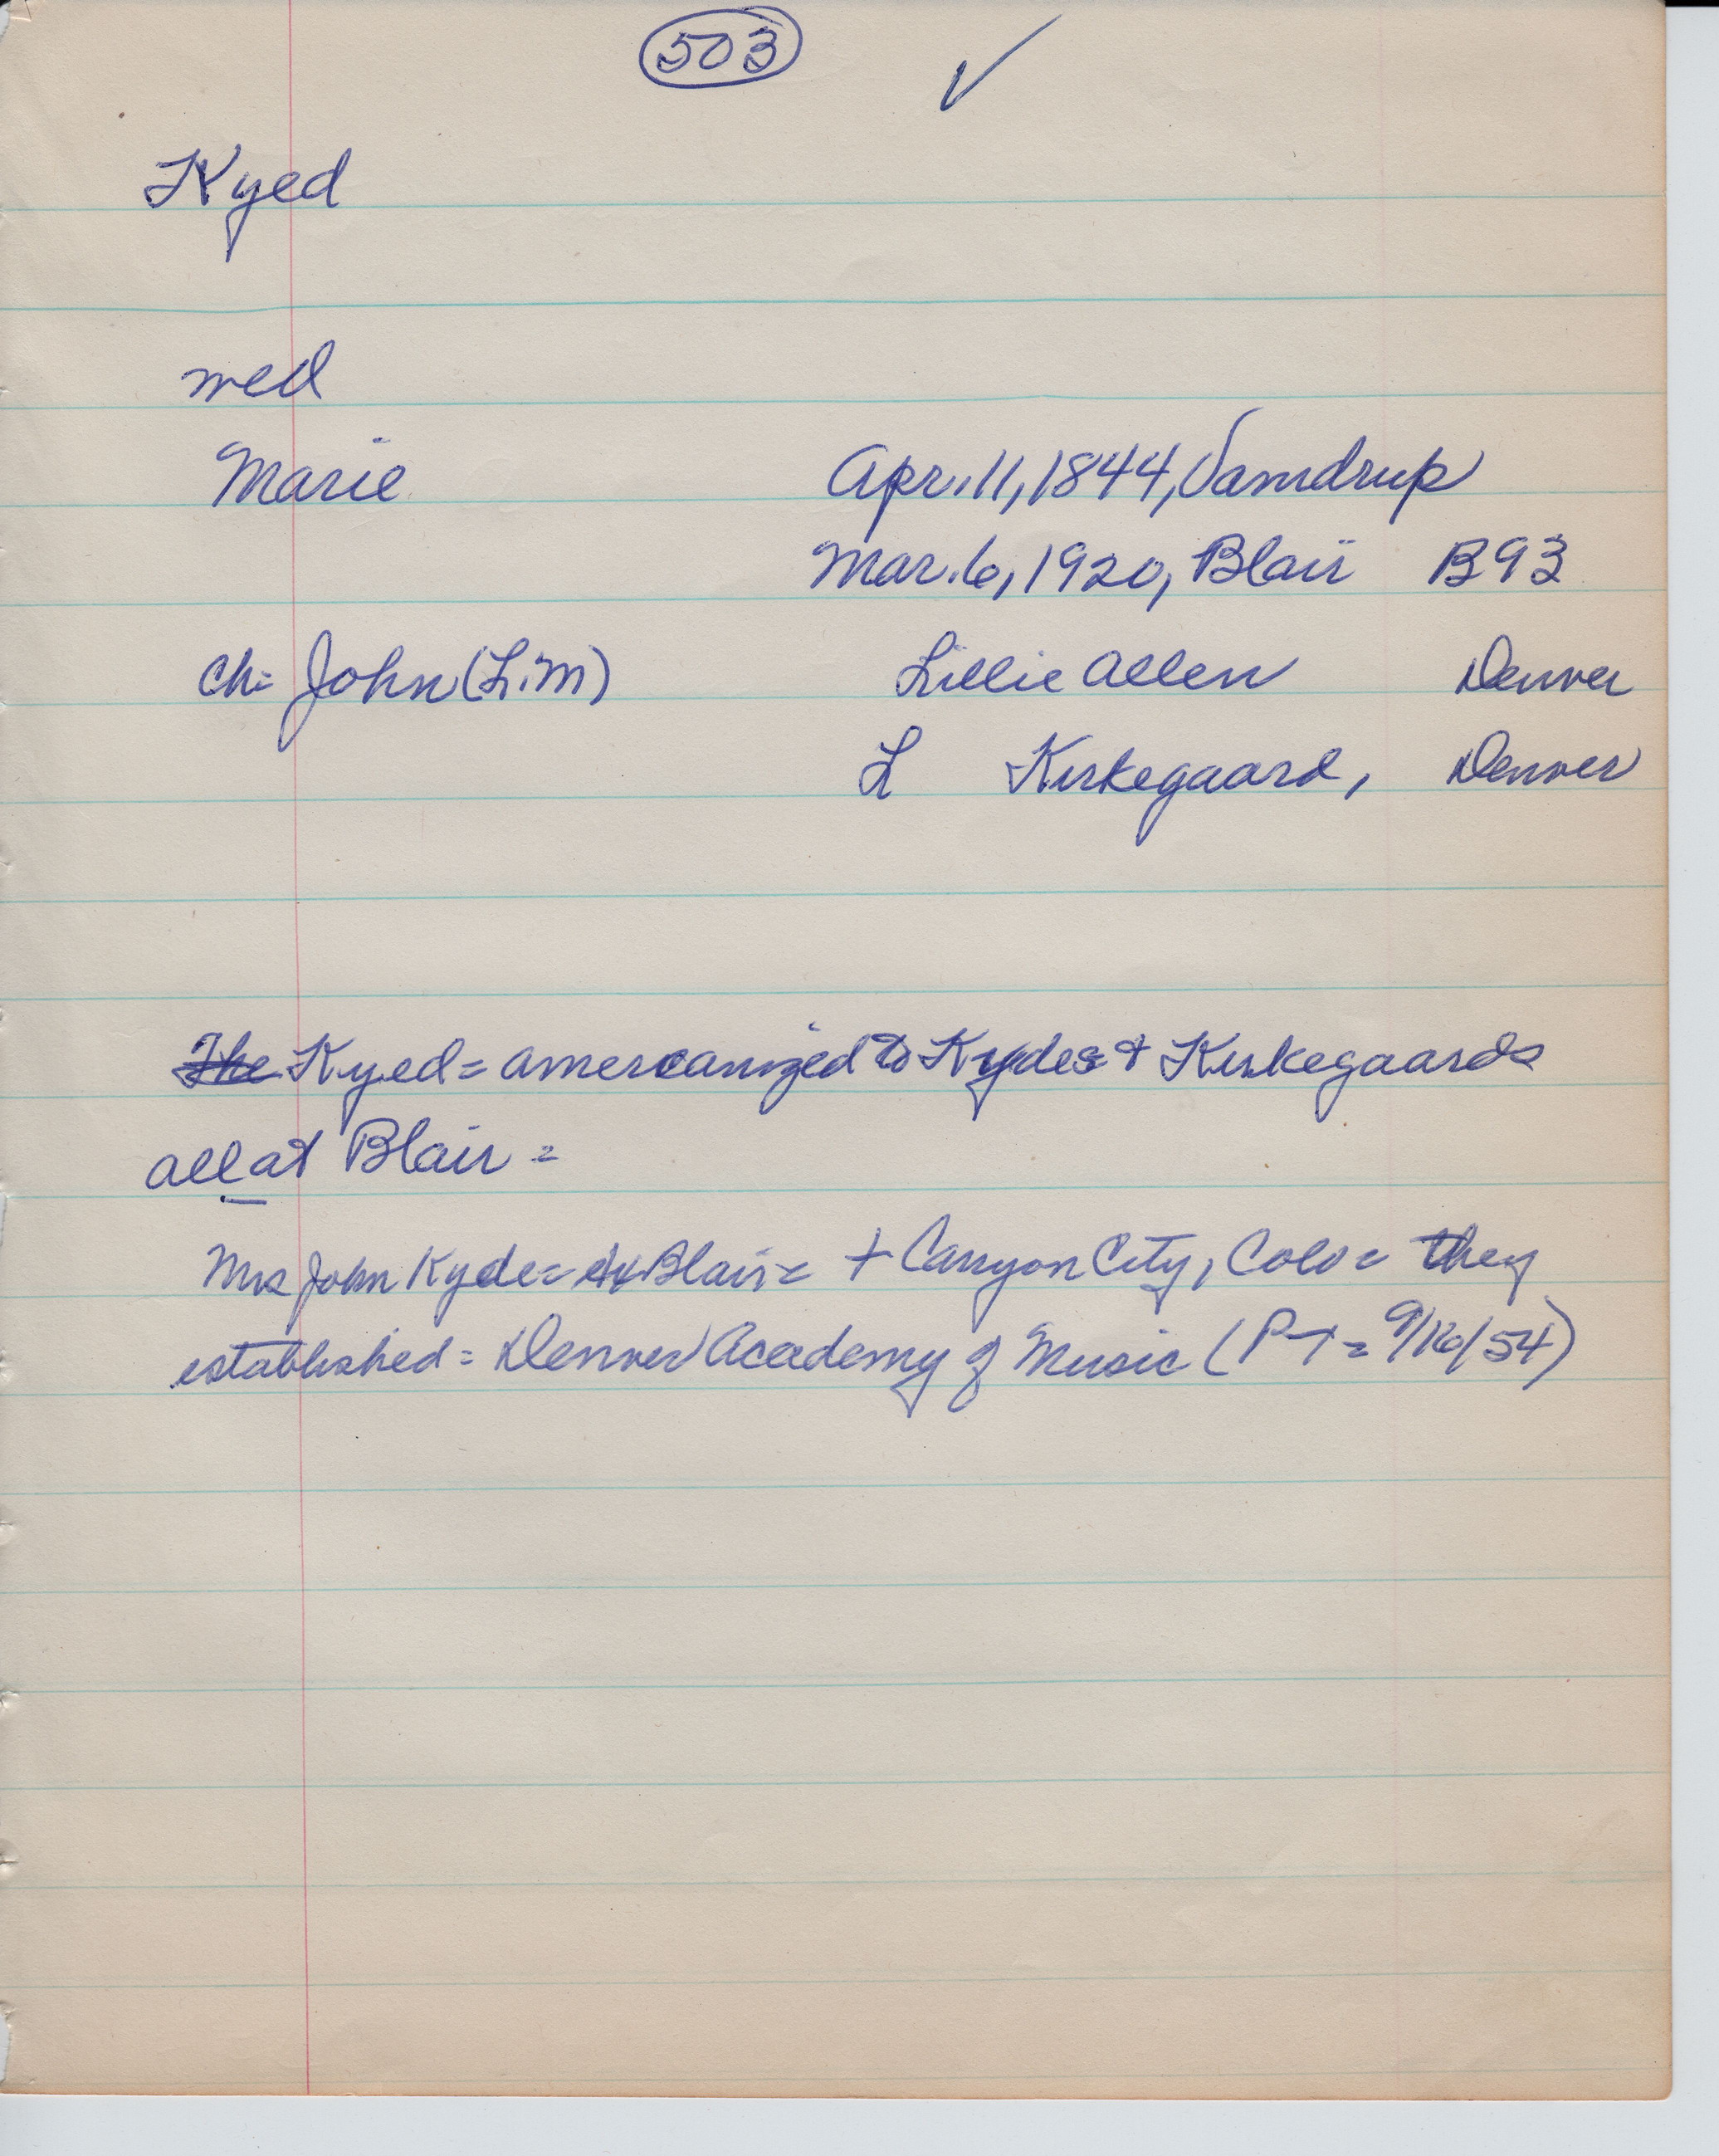 503 ✓
Kyed
wed
Marie Apr. 11, 1844, Vamdrup
Mar. 6, 1920, Blair B93
Ch: John (L.M) Lillie Allen Denver
L Kirkegaard, Denver
The Kyed = americanized to Kydes & Kirkegaards
all at Blair =
Mrs John Kyde = Blair = + Canyon City, Colo = they
established = Denver Academy of Music (P-T = 9/16/54)